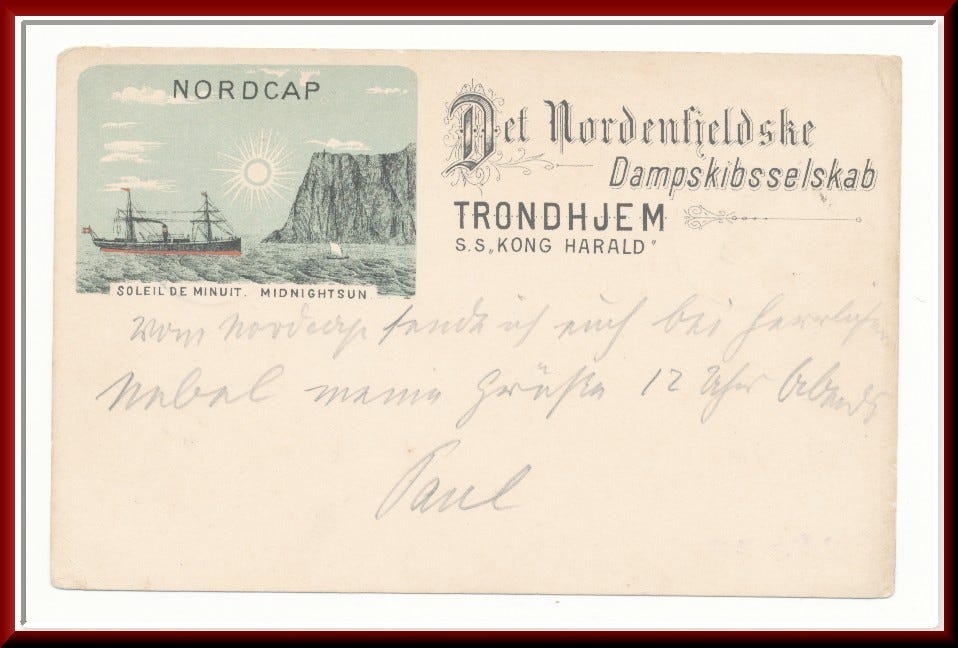 NORDCAP
SOLEIL DE MINUIT. MIDNIGHTSUN.
Det Nordenfjeldske
Dampskibsselskab
TRONDHJEM
S.S. „KONG HARALD"
Vom Nordcap sende ich euch bei herrlichem
Nebel meine Grüße 12 Uhr Abends
Paul